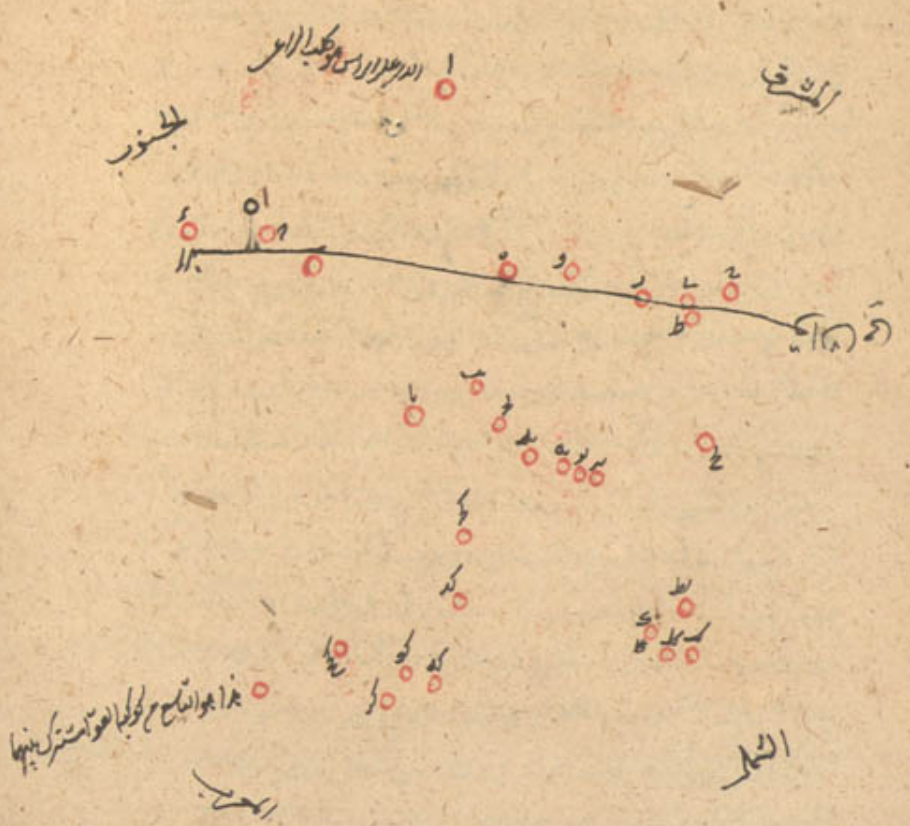 الذي على الراس وهو كلب الراعي
ا
المشرق
الجنوب
ا
ه
و
ز
ح
ط
يا
يب
يج
يد
يه
يو
يز
يح
كج
يط
كد
ك
كا
كب
كه
كو
كز
كح
هذا هو التاسع من كواكب العوا مشترك بينهما
الشمال
المغرب